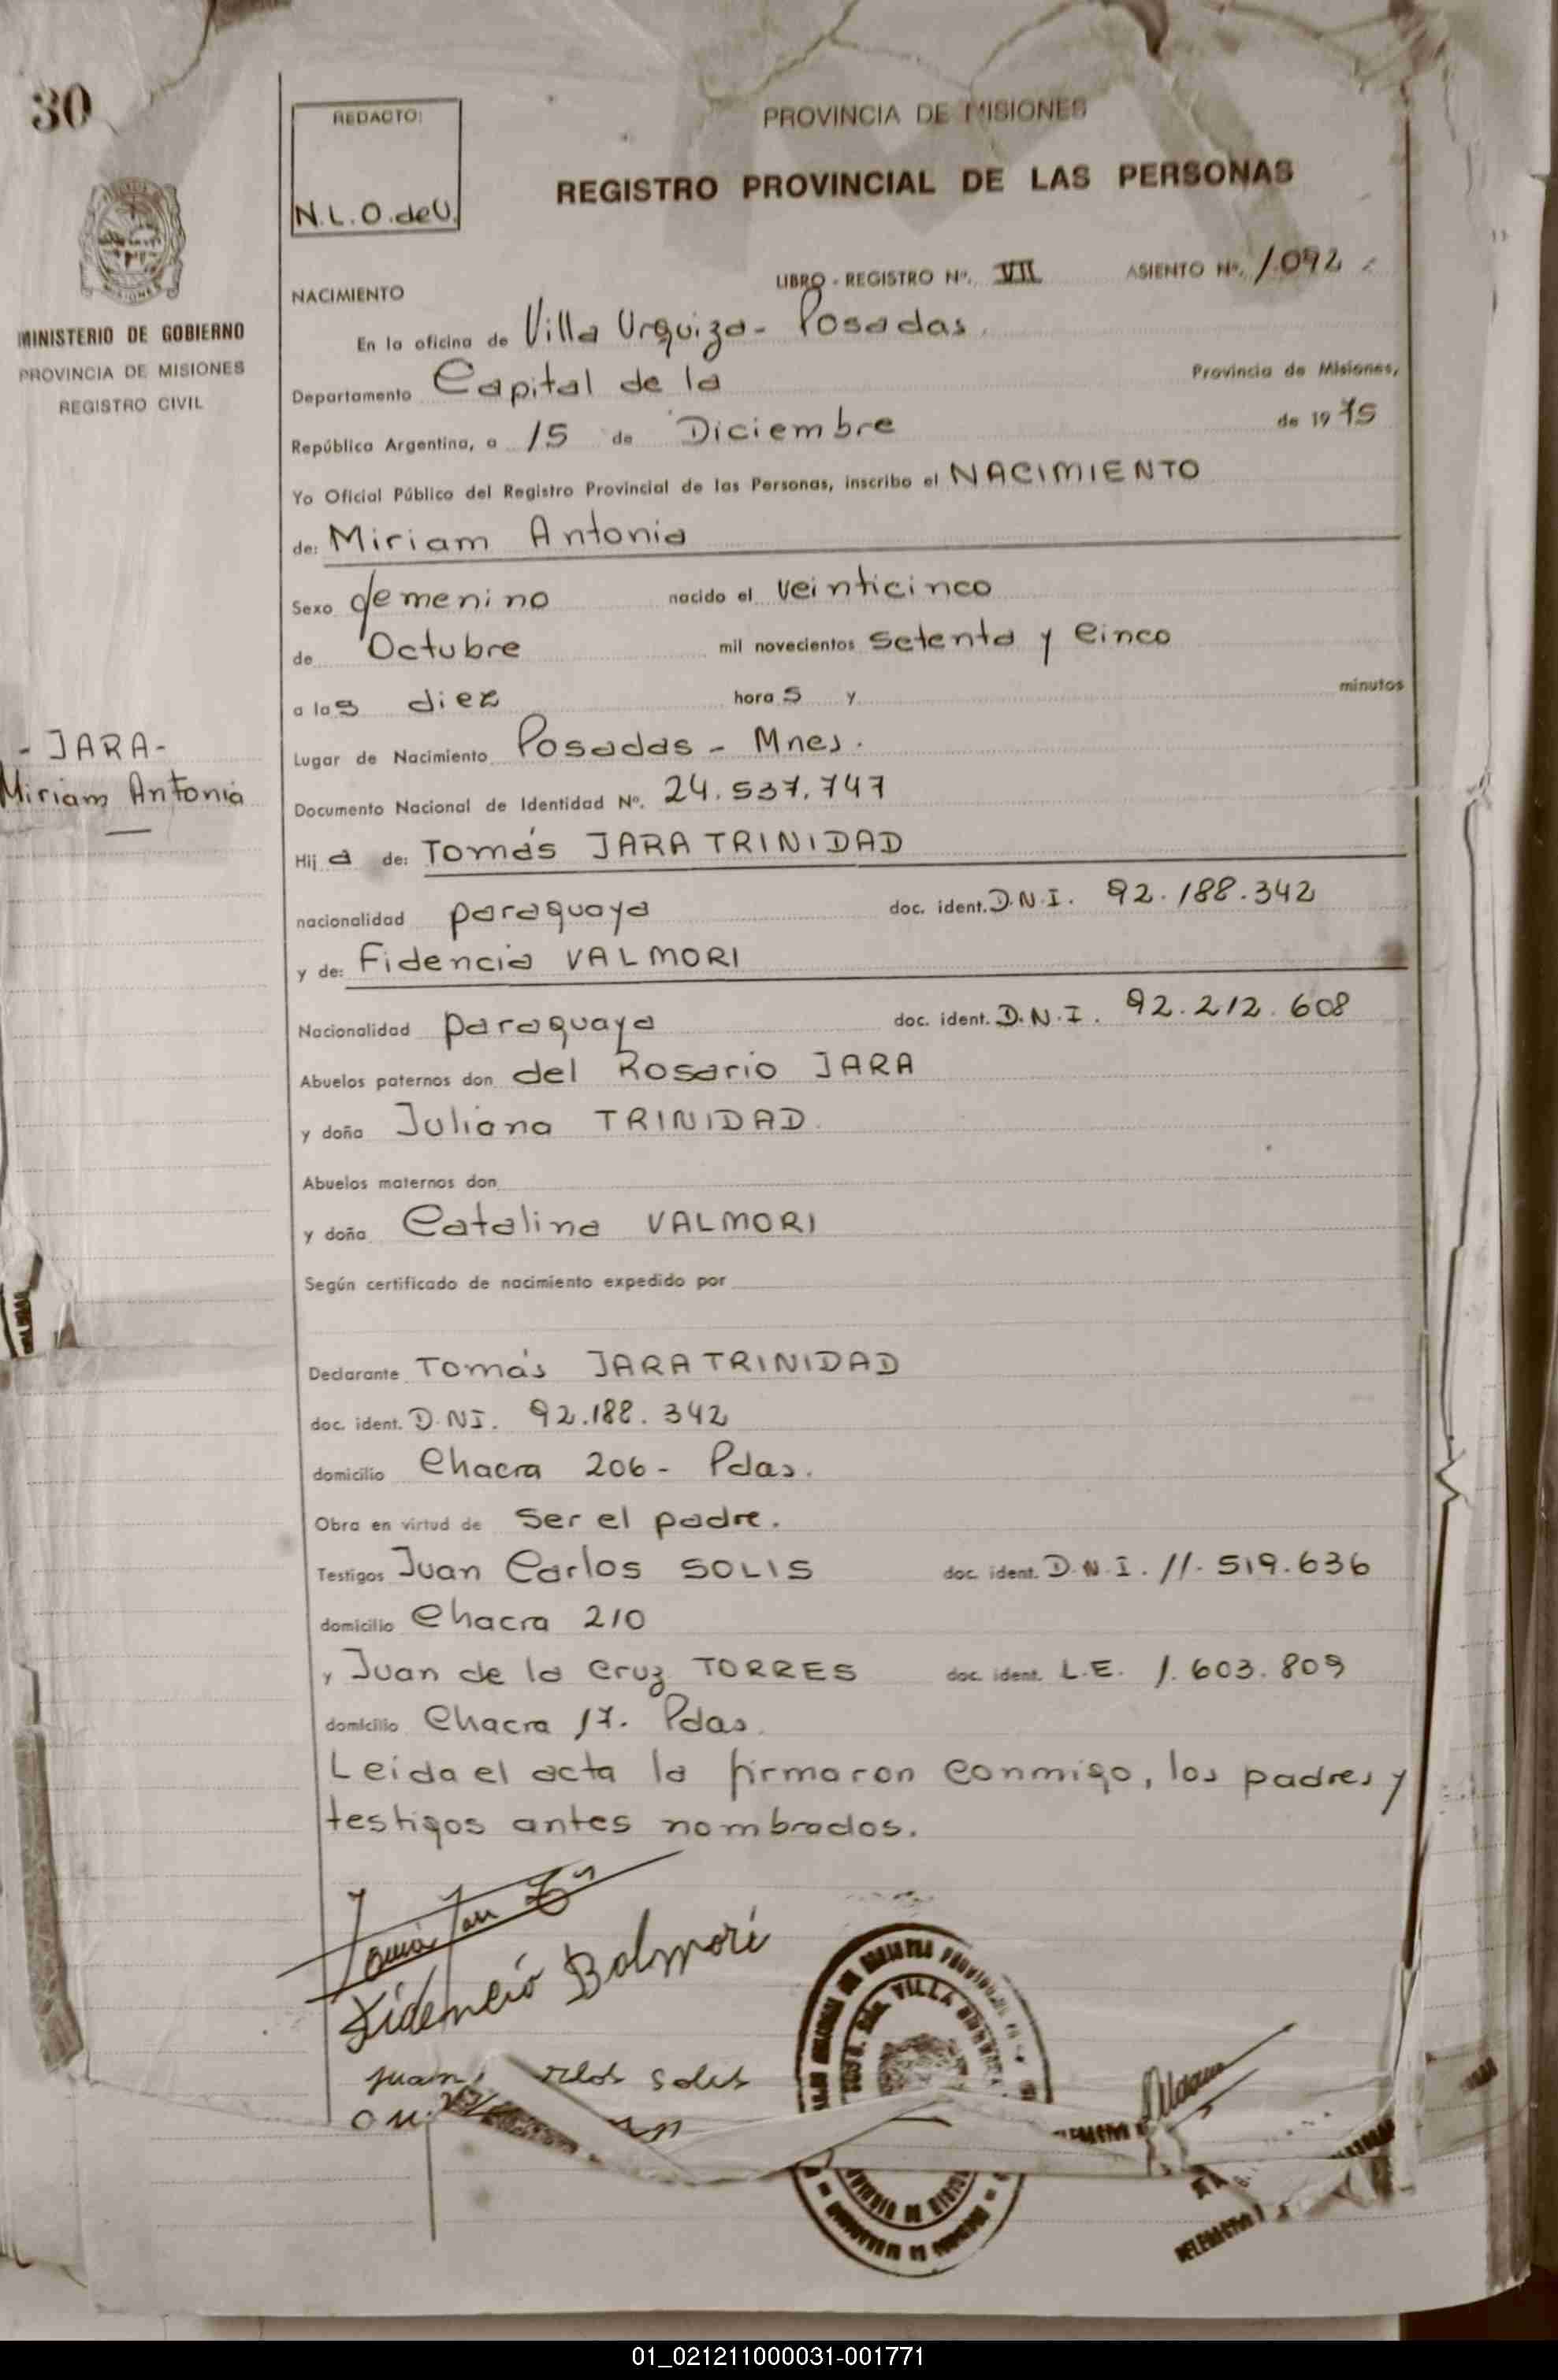 30
REDACTO:
N.L.O.deU.
PROVINCIA DE MISIONES
REGISTRO PROVINCIAL DE LAS PERSONAS
MISIONES
MINISTERIO DE GOBIERNO
PROVINCIA DE MISIONES
REGISTRO CIVIL
LIBRO - REGISTRO Nº. VII ASIENTO Nº. 1.092
NACIMIENTO
En la oficina de Villa Urquiza - Posadas.
Departamento Capital de la Provincia de Misiones,
República Argentina, a 15 de Diciembre de 1975
Yo Oficial Público del Registro Provincial de las Personas, inscribo el NACIMIENTO
de: Miriam Antonia
Sexo femenino nacido el veinticinco
de Octubre mil novecientos setenta y cinco
a las diez horas y minutos
- JARA -
Miriam Antonia
Lugar de Nacimiento Posadas - Mnes.
Documento Nacional de Identidad Nº. 24.537.747
Hija de: Tomás JARA TRINIDAD
nacionalidad paraguaya doc. ident. D.N.I. 92.188.342
y de: Fidencia VALMORI
Nacionalidad paraguaya doc. ident. D.N.I. 92.212.608
Abuelos paternos don del Rosario JARA
y doña Juliana TRINIDAD.
Abuelos maternos don
y doña Catalina VALMORI
Según certificado de nacimiento expedido por
Declarante Tomás JARA TRINIDAD
doc. ident. D.NI. 92.188.342
domicilio Chacra 206 - Pdas.
Obra en virtud de ser el padre.
Testigos Juan Carlos SOLIS doc. ident. D.N.I. 11.519.636
domicilio Chacra 210
y Juan de la Cruz TORRES doc. ident. L.E. 1.603.809
domicilio Chacra 17. Pdas.
Leida el acta la firmaron conmigo, los padres y
testigos antes nombrados.
Fidencia Balmori
Juan
VILLA
01_021211000031-001771